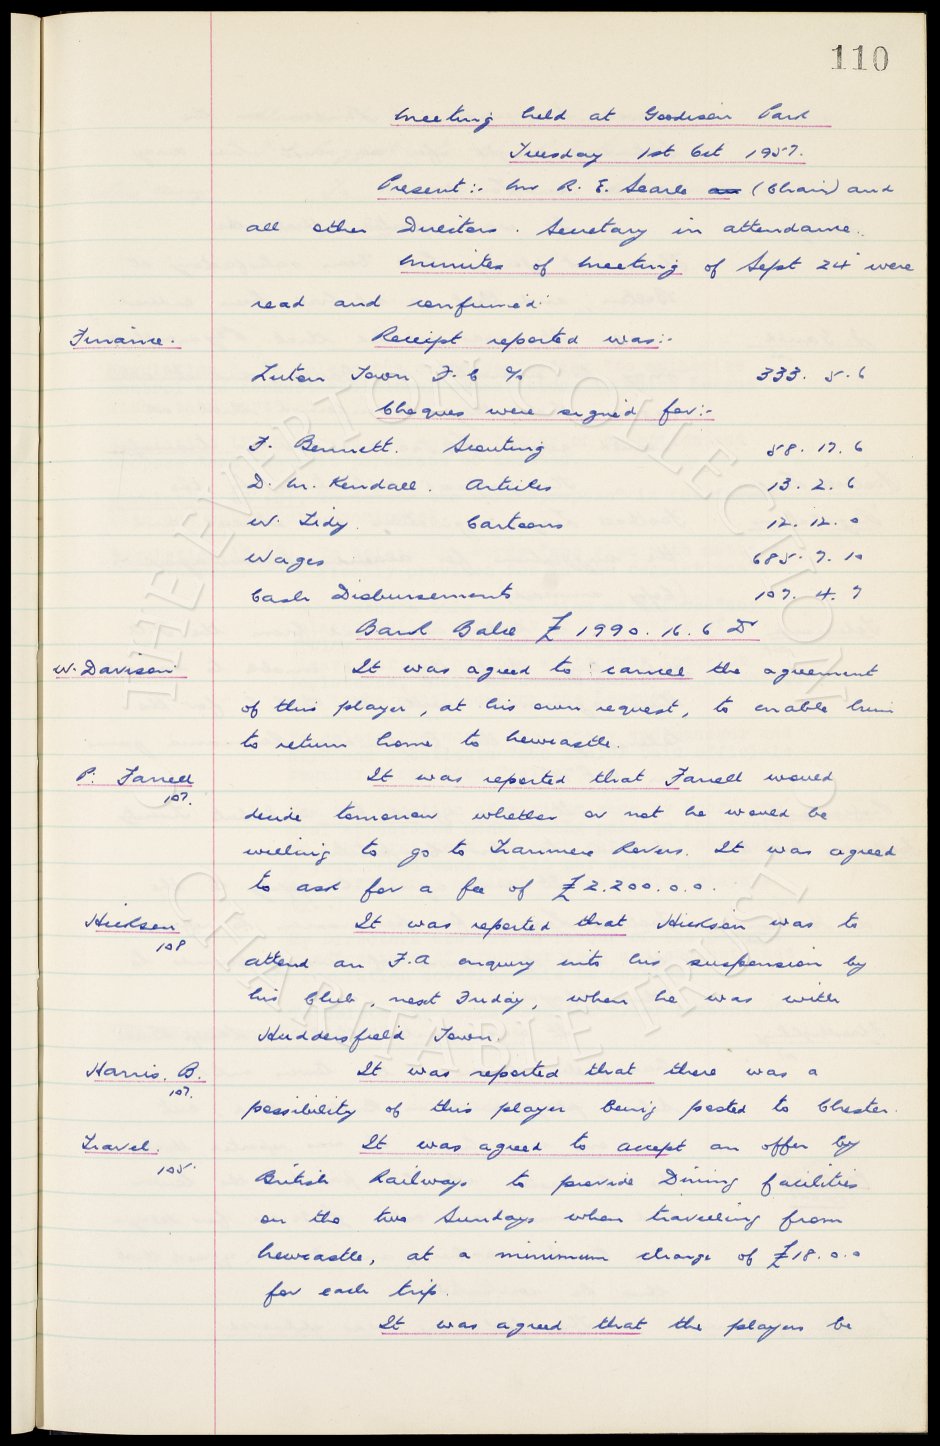 110
Meeting held at Goodison Park
Tuesday 1st Oct 1957.
Present:- Mr R. E. Searle (Chair) and
all other Directors. Secretary in attendance.
Minutes of meeting of Sept 24 were
read and confirmed.
Finance. Receipt reported was:-
Luton Town F.C. 333. 5. 6
Cheques were signed for:-
F. Bennett. Scouting 58. 17. 6
D. M. Kendall. Articles 13. 2. 6
W. Lidy. Cartoons 12. 12. 0
Wages 685. 7. 10
Cash Disbursements 107. 4. 7
Bank Balce £1990. 16. 6 Dr
W. Davison It was agreed to cancel the agreement
of this player, at his own request, to enable him
to return home to Newcastle.
P. Farrell It was reported that Farrell would
107.
decide tomorrow whether or not he would be
willing to go to Tranmere Rovers. It was agreed
to ask for a fee of £2.200.0.0.
Hickson It was reported that Hickson was to
108
attend an F.A enquiry into his suspension by
his Club, next Friday, when he was with
Huddersfield Town.
Harris. B. It was reported that there was a
107.
possibility of this player being posted to Chester.
Travel. It was agreed to accept an offer by
105.
British Railways to provide Dining facilities
on the two Sundays when travelling from
Newcastle, at a minimum charge of £18.0.0
for each trip.
It was agreed that the players be
THE EVERTON COLLECTION
CHARITABLE TRUST